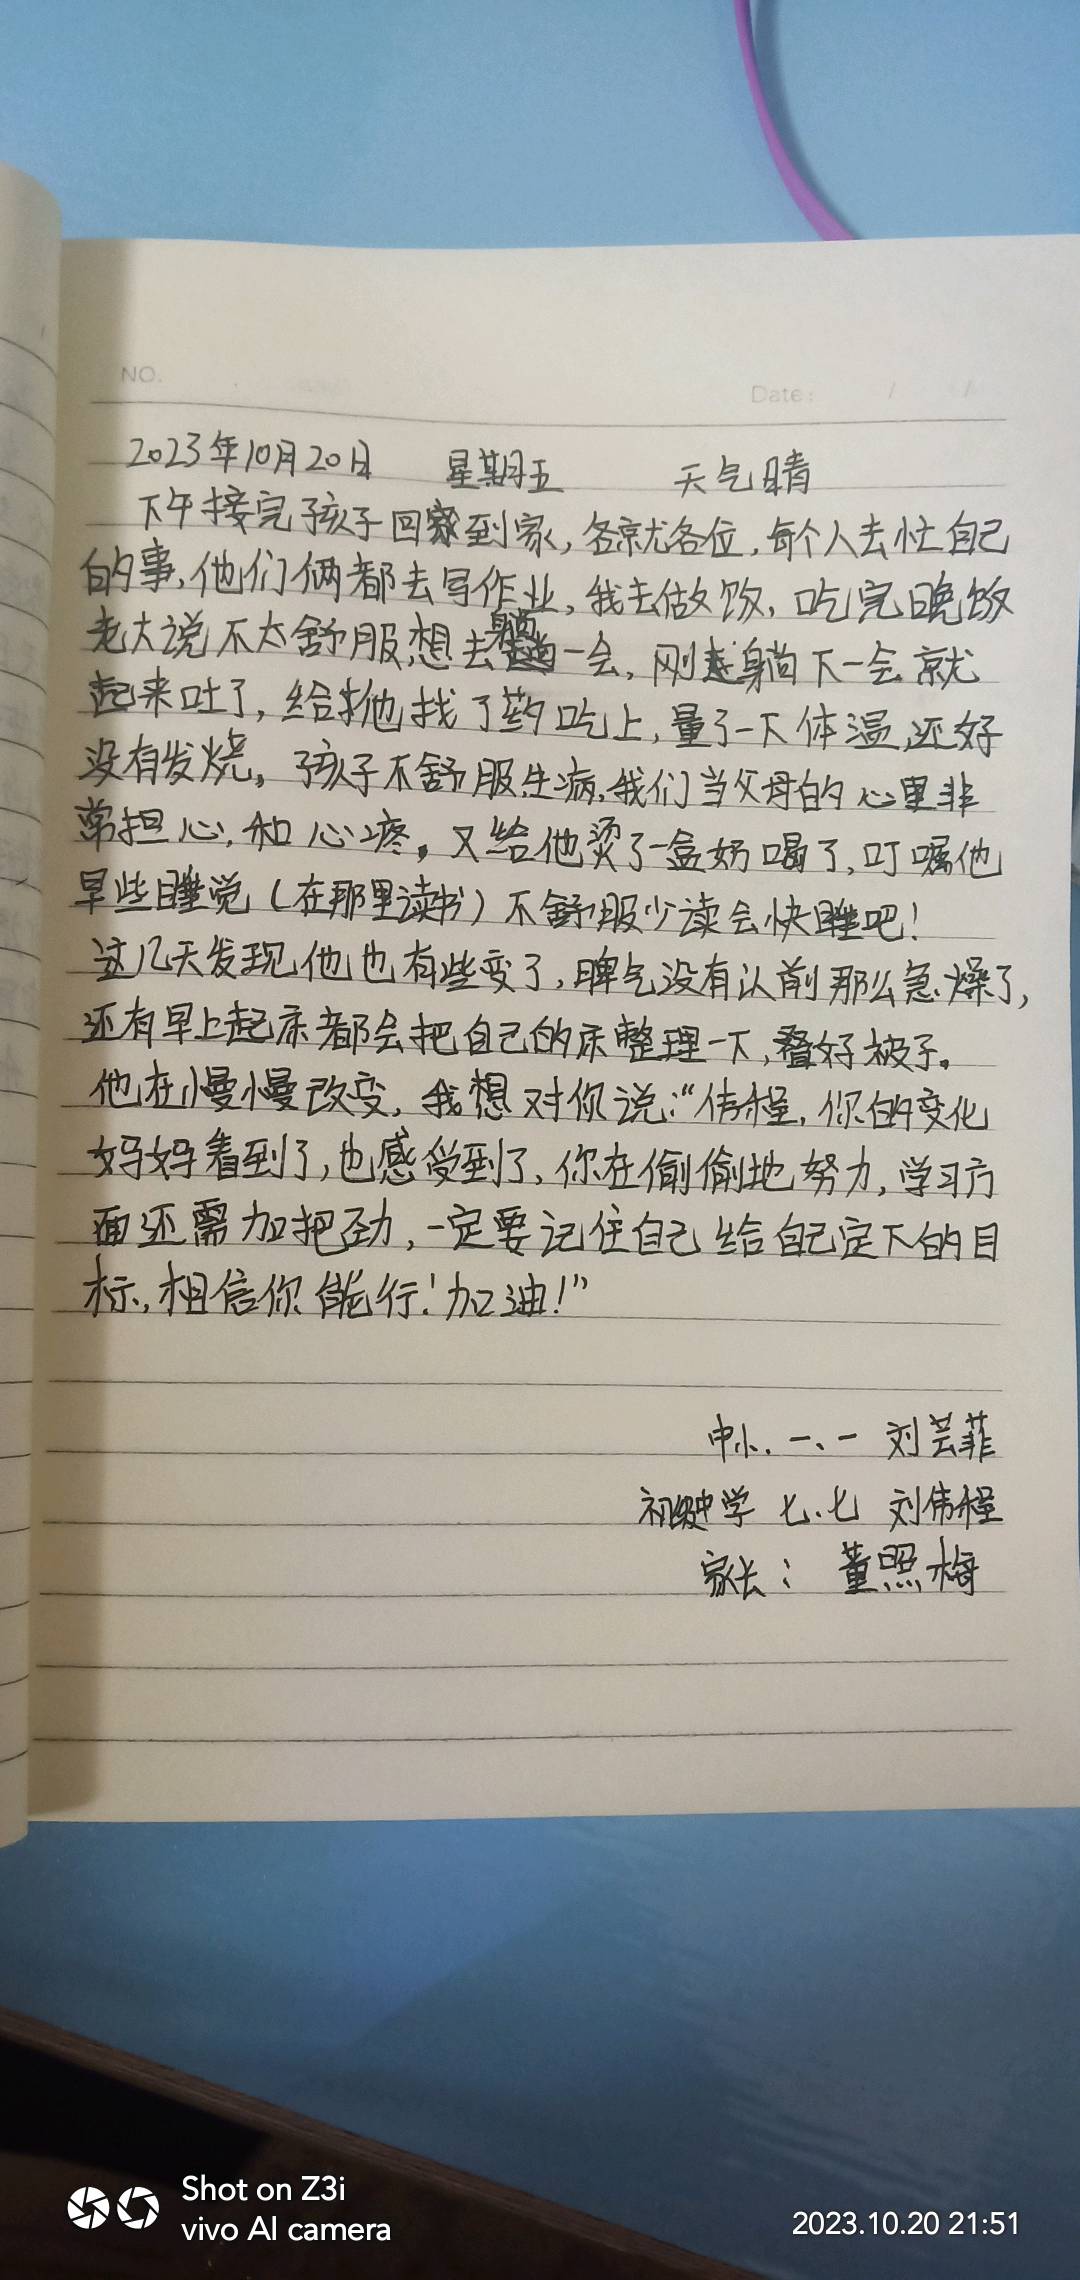 NO.
Date: / /
2023年10月20日 星期五 天气晴
下午接完孩子回家到家,各就各位,每个人去忙自己
的事,他们俩都去写作业,我去做饭,吃完晚饭
老大说不太舒服,想去躺一会,刚躺下一会就
起来吐了,给他找了药吃上,量了一下体温,还好
没有发烧。孩子不舒服生病,我们当父母的心里非
常担心,和心疼。又给他烫了一盒奶喝了,叮嘱他
早些睡觉(在那里读书)不舒服少读会快睡吧!
这几天发现他也有些变了,脾气没有认前那么急燥了,
还有早上起床都会把自己的床整理一下,叠好被子。
他在慢慢改变,我想对你说:“伟程,你的变化
妈妈看到了,也感受到了,你在偷偷地努力,学习方
面还需加把劲,一定要记住自己给自己定下的目
标,相信你能行!加油!”
中小.一、一 刘芸菲
初级中学 七.七 刘伟程
家长: 董照梅
Shot on Z3i
vivo AI camera
2023.10.20 21:51